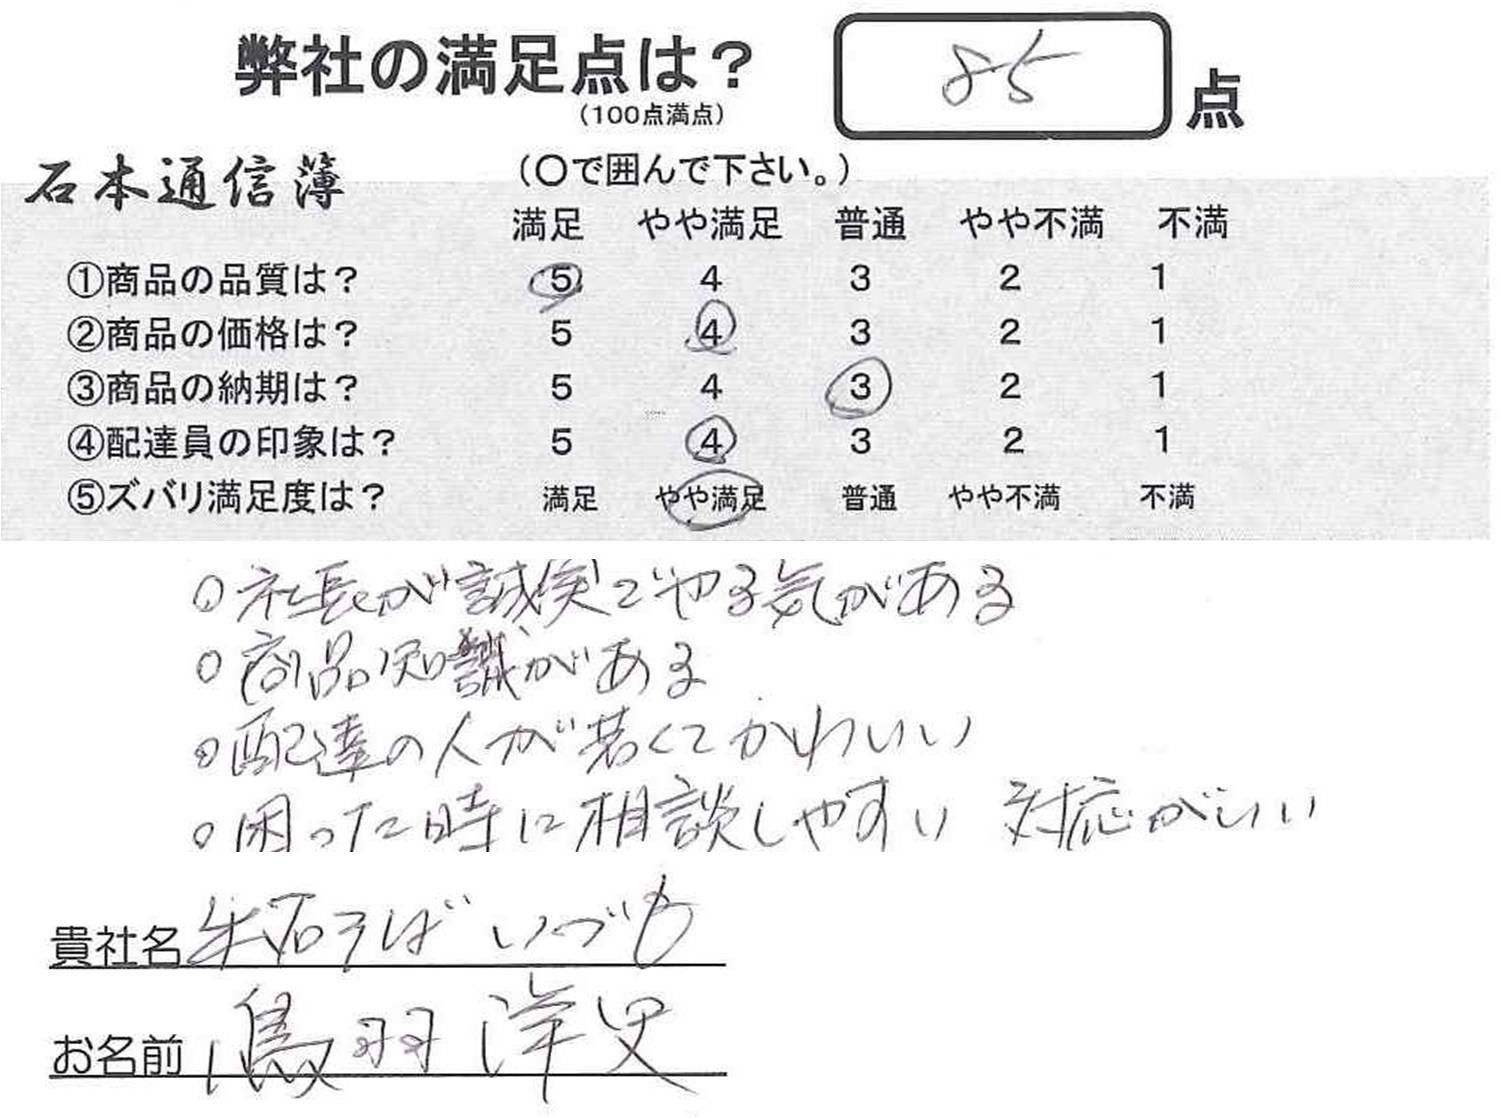 弊社の満足点は？ 85 点
（100点満点）
石本通信簿 （〇で囲んで下さい。）
満足 やや満足 普通 やや不満 不満
①商品の品質は？ 5 4 3 2 1
②商品の価格は？ 5 4 3 2 1
③商品の納期は？ 5 4 3 2 1
④配達員の印象は？ 5 4 3 2 1
⑤ズバリ満足度は？ 満足 やや満足 普通 やや不満 不満
○社長が誠実でやる気がある
○商品知識がある
○配達の人が若くてかわいい
○困った時に相談しやすい 対応がいい
貴社名 生石そば いづも
お名前 鳥羽 洋史